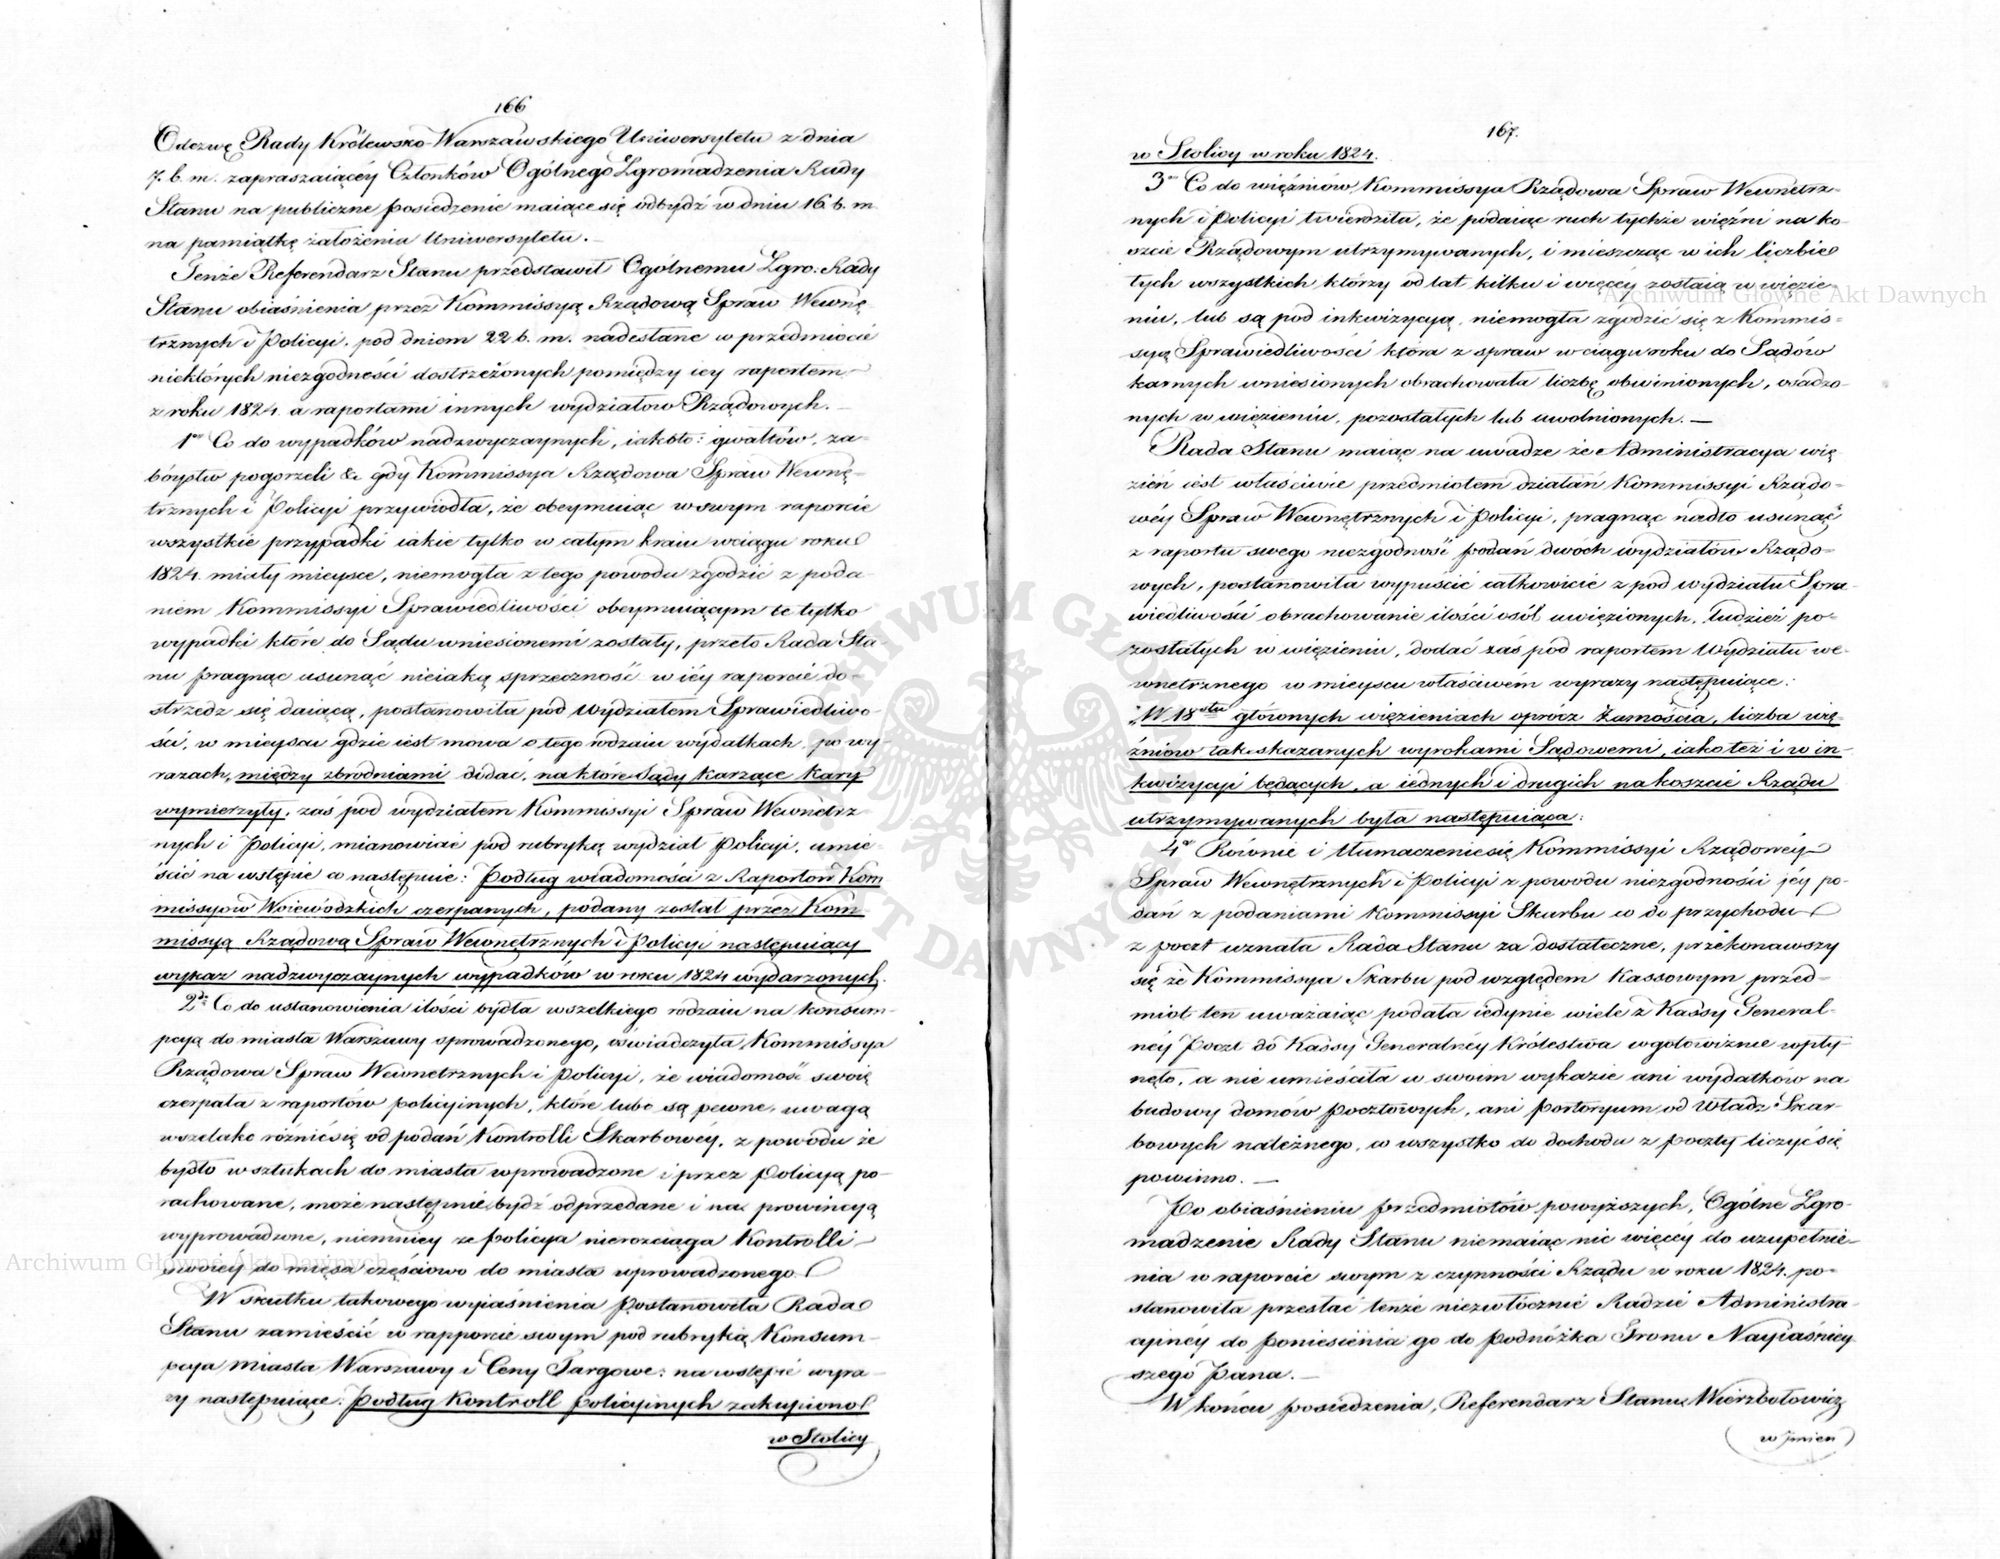 166
Odezwę Rady Królewsko-Warszawskiego Uniwersytetu z dnia
7. b. m. zapraszaiącéy Członków Ogólnego Zgromadzenia Rady
Stanu na publiczne posiedzenie maiące się odbydź w dniu 16. b. m.
na pamiątkę założenia Uniwersytetu. —
Tenże Referendarz Stanu przedstawił Ogólnemu Zgro: Rady
Stanu obiaśnienia przez Kommissyą Rządową Spraw Wewnę-
trznych i Policyi. pod dniem 22 b. m. nadesłane w przedmiocie
niektórych niezgodności dostrzeżonych pomiędzy iey raportem
z roku 1824 a raportami innych wydziałow Rządowych. —
1o Co do wypadków nadzwyczaynych, iakoto: gwałtów, za-
bóystw pogorzeli & gdy Kommissya Rządowa Spraw Wewnę-
trznych i Policyi przywiodła, że obeymuiąc w swym raporcie
wszystkie przypadki iakie tylko w całym kraiu wciągu roku
1824 miały mieysce, niemogła z tego powodu zgodzić z poda-
niem Kommissyi Sprawiedliwości obeymuiącym te tylko
wypadki które do Sądu wniesionemi zostały, przeto Rada Sta-
nu pragnąc usunąć nieiaką sprzeczność w iéy raporcie do-
strzedz się daiącą, postanowiła pod Wydziałem Sprawiedliwo-
ści, w mieyscu gdzie iest mowa o tego rodzaiu wydatkach, po wy-
razach, między zbrodniami dodać, na które Sądy karzące kary
wymierzyły. zaś pod wydziałem Kommissyi Spraw Wewnętrz
nych i Policyi, mianowicie pod rubryką wydział Policyi, umie-
ścić na wstępie co następuie: Podług wiadomości z Raportów Kom
missyow Woiewódzkich czerpanych, podany został przez Kom-
missyą Rządową Spraw Wewnętrznych i Policyi następuiący
wykaz nadzwyczaynych wypadków w roku 1824 wydarzonych.
2do Co do ustanowienia ilości bydła wszelkiego rodzaiu na konsum-
pcyą do miasta Warszawy sprowadzonego, oświadczyła Kommissya
Rządowa Spraw Wewnetrznych i Policyi, że wiadomość swoię
czerpała z raportów policyinych, które lubo są pewne, uwagą
wszelako różnić się od podań Kontrolli Skarbowéy, z powodu że
bydło w sztukach do miasta wprowadzone i przez Policyą po-
rachowane, może następnie bydź odprzedane i na prowincyą
wyprowadzone, niemniey ze policya nierozciąga Kontrolli
swoiéy do mięsa częściowo do miasta wprowadzonego.
W skutku takowego wyiaśnienia postanowiła Rada
Stanu zamieścić w rapporcie swym pod rubryką Konsum-
pcya Miasta Warszawy i Ceny Targowe: na wstępie wyra-
zy następuiące: Podług kontroll policyinych zakupiono
w Stolicy
167.
w Stolicy w roku 1824.
3o Co do więźniów Kommissya Rządowa Spraw Wewnętrz-
nych i Policyi twierdziła, że podaiąc ruch tychże więźni na ko-
szcie Rządowym utrzymywanych, i mieszcząc w ich liczbie
tych wszystkich którzy od lat kilku i więcéy zostaią w więzie-
niu, lub są pod inkwizycyą, niemogła zgodzić się z Kommis-
syą Sprawiedliwości która z spraw wciągu roku do Sądów
karnych wniesionych obrachowała liczbę obwinionych, osadzo-
nych w więzieniu, pozostałych lub uwolnionych. —
Rada Stanu maiąc na uwadze że Administracya wię
zień iest właściwie przedmiotem działań Kommissyi Rządo-
wéy Spraw Wewnętrznych i Policyi, pragnąc nadto usunąć
z raportu swego niezgodność podań dwóch wydziałów Rządo-
wych, postanowiła wypuścić całkowicie z pod wydziału Spra-
wiedliwości obrachowanie ilości osób uwięzionych, tudzież po-
zostałych w więzieniu, dodać zaś pod raportem Wydziału we-
wnetrznego w mieyscu właściwém wyrazy następuiące:
"W 18stu głównych więzieniach oprócz Zamościa, liczba wię-
źniów tak skazanych wyrokami Sądowemi, iako też i w in-
kwizycyi będących, a iednych i drugich na koszcie Rządu
utrzymywanych była następuiąca:
4o Równie i tłumaczenie się Kommissyi Rządowéy
Spraw Wewnętrznych i Policyi z powodu niezgodności jéy po-
dań z podaniami Kommissyi Skarbu co do przychodu
z poczt uznała Rada Stanu za dostateczne, przekonawszy
się że Kommissya Skarbu pod względem Kassowym przed-
miot ten uważaiąc podała iedynie wiele z Kassy General-
néy Poczt do Kassy Generalnéy Królestwa w gotowiznie wpły-
nęło, a nie umieściła w swoim wykazie ani wydatków na
budowy domów pocztowych, ani portoryum od Władz Skar-
bowych należnego, co wszystko do dochodu z poczty liczyć się
powinno. —
Po obiaśnieniu przedmiotów powyższych, Ogólne Zgro-
madzenie Rady Stanu niemaiąc nic więcéy do uzupełnie-
nia w raporcie swym z czynności Rządu w roku 1824. po-
stanowiła przesłać tenże niezwłocznie Radzie Administra-
cyinéy do poniesienia go do podnóżka Tronu Nayiaśniey
szego Pana. —
W końcu posiedzenia, Referendarz Stanu Wierzbołowicz
w jmien
Archiwum Główne Akt Dawnych
Archiwum Główne Akt Dawnych
ARCHIWUM GŁÓWNE AKT DAWNYCH